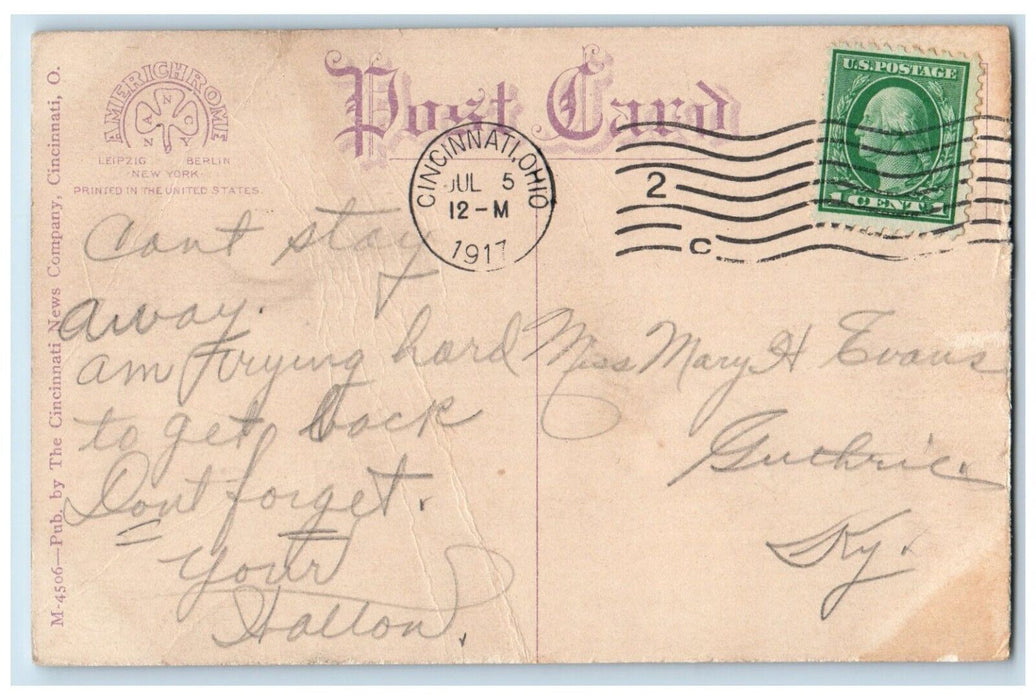 Post Card
AMERICHROME
N
A C
N Y
LEIPZIG BERLIN
NEW YORK
PRINTED IN THE UNITED STATES.
M-4506—Pub. by The Cincinnati News Company, Cincinnati, O.
CINCINNATI, OHIO
JUL 5
12-M
1917
2
C
U.S. POSTAGE
1 CENT 1
Cant stay
away.
am trying hard
to get back
Dont forget.
Your
Halton.
Miss Mary H Evans
Guthrie.
Ky.